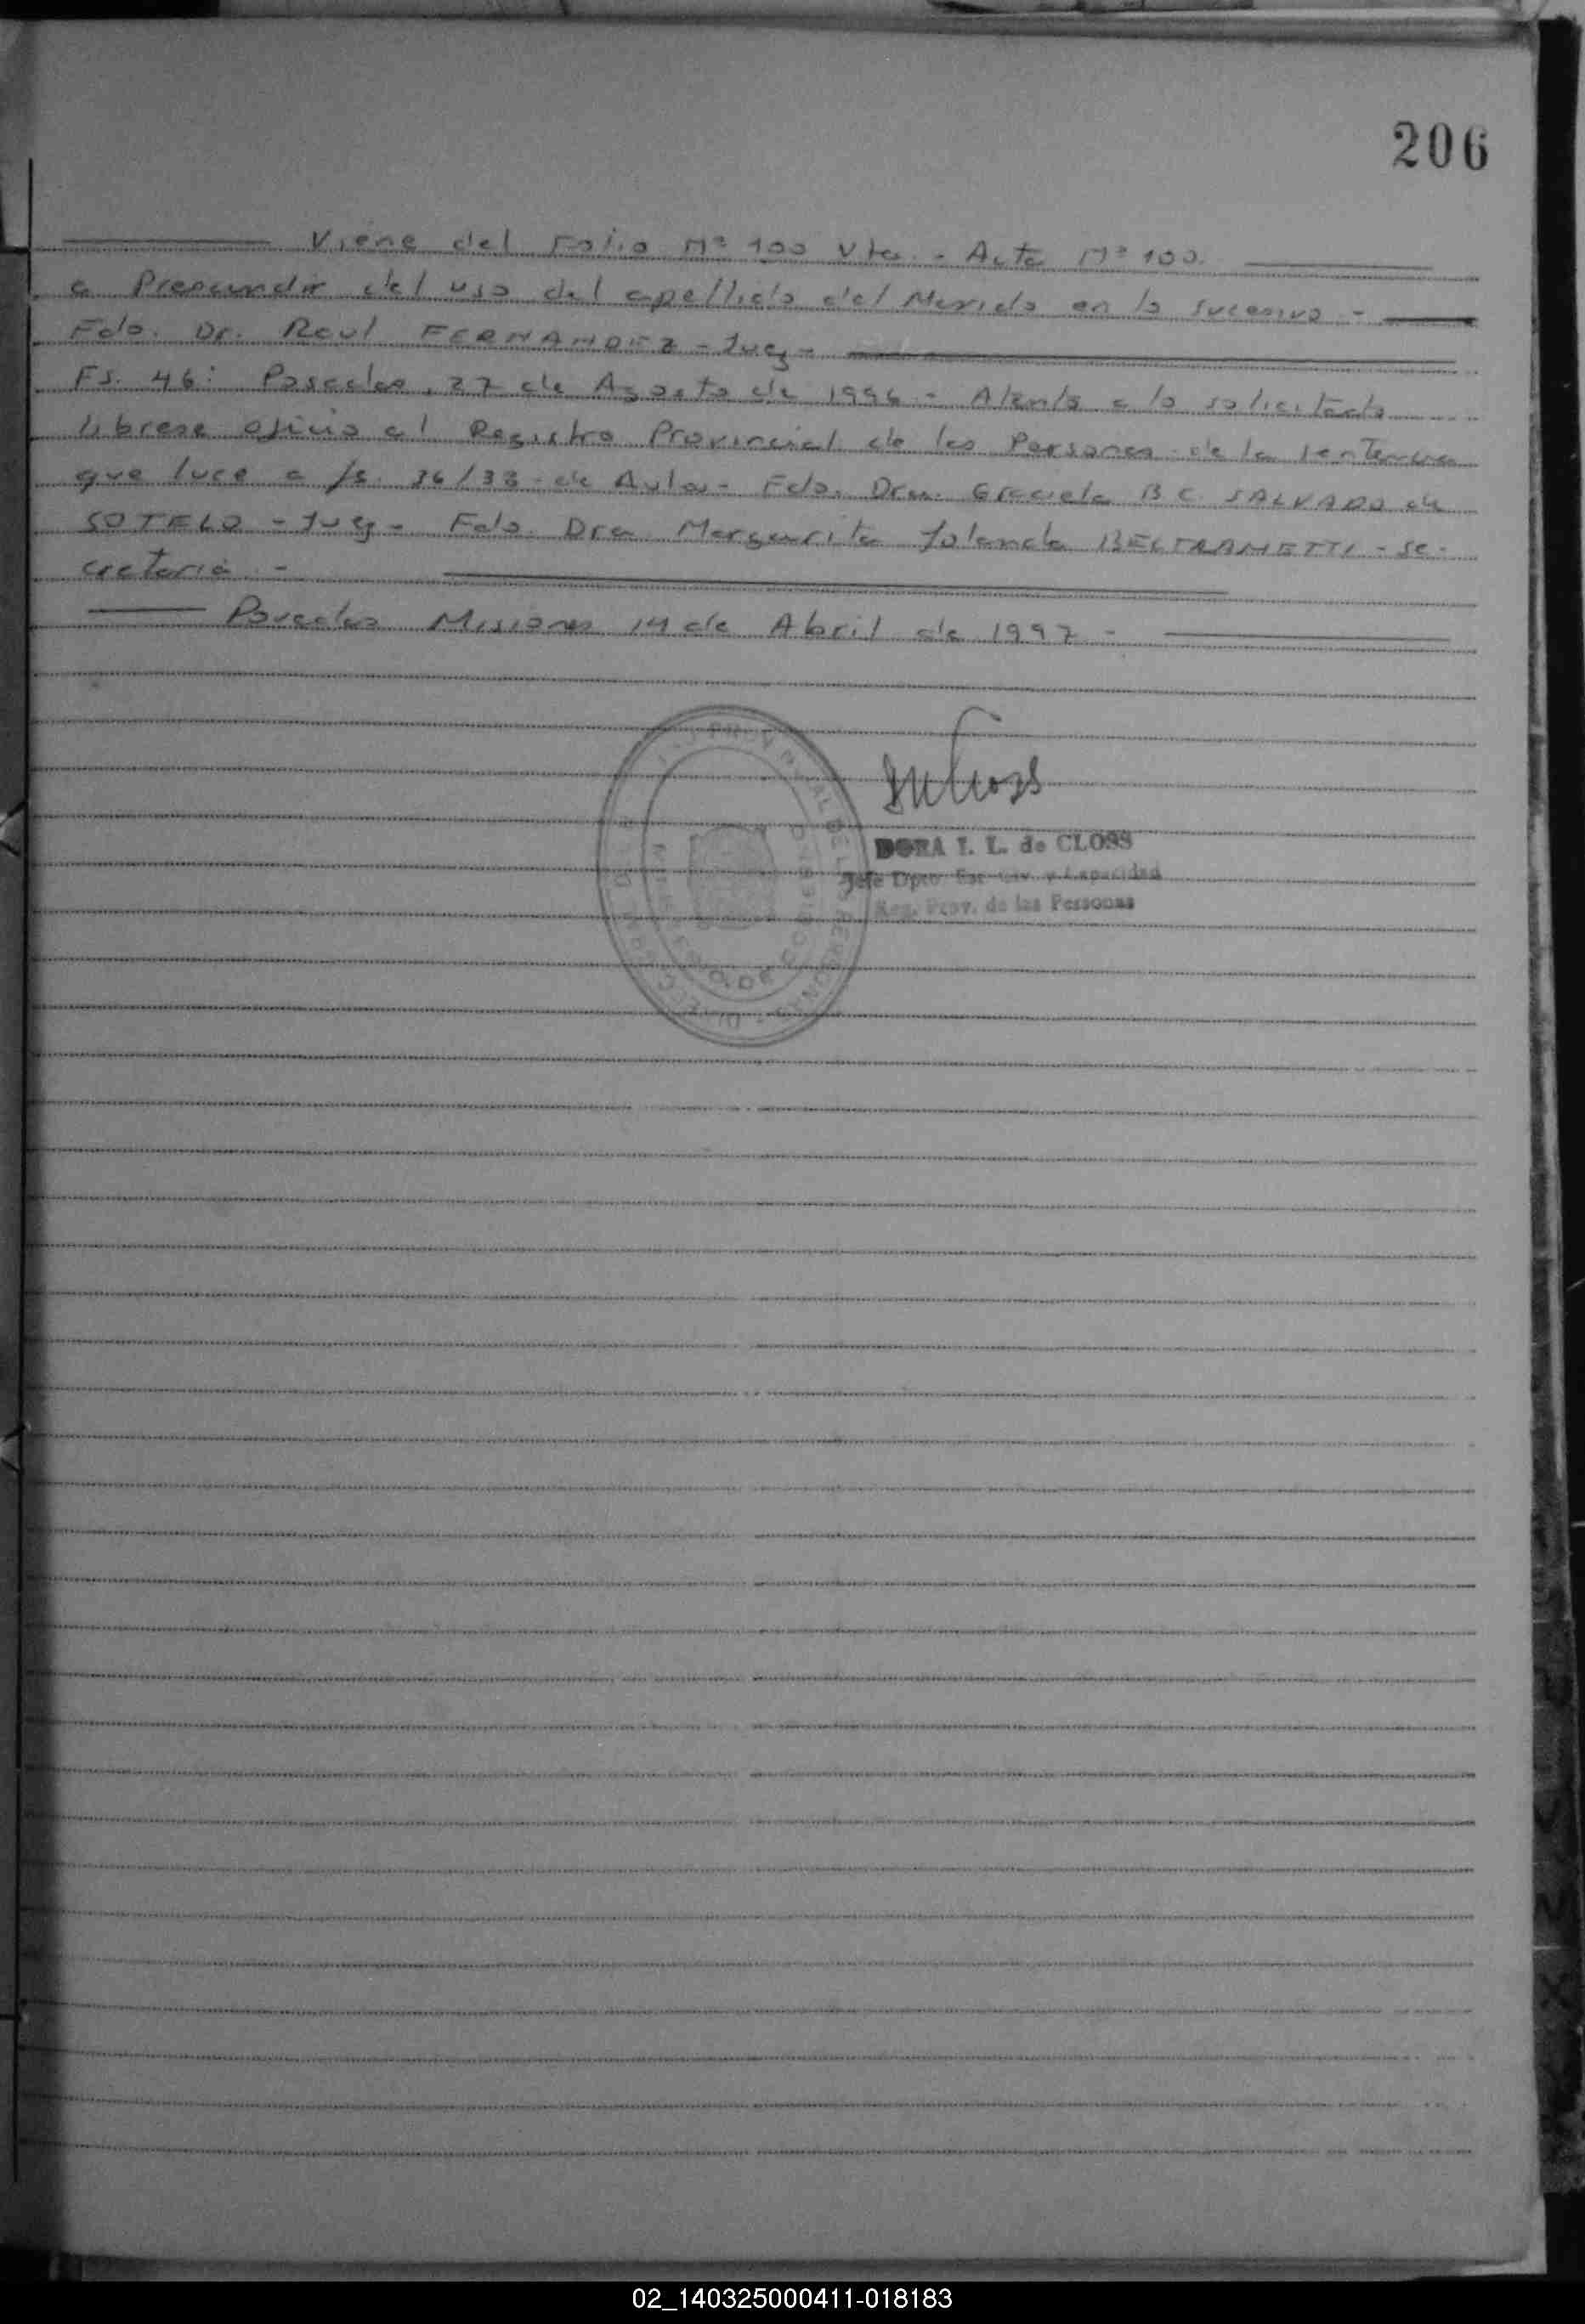 206
Viene del Folio Nº 100 Vta. - Acta Nº 100.
a Prescindir del uso del apellido del Marido en lo sucesivo -
Fdo. Dr. Raul FERNANDEZ - Juez -
Fs. 46: Posadas, 27 de Agosto de 1996 - Atento a lo solicitado
librese oficio al Registro Provincial de las Personas de la sentencia
que luce a fs. 36/38 - de Autos - Fdo. Dra. Graciela B C. SALVADO de
SOTELO - Juez - Fdo. Dra Margarita Yolanda BELTRAMETTI - Se-
cretaria -
Posadas Misiones 14 de Abril de 1997 -
DORA I. L. de CLOSS
Jefe Dpto. Est. Civ. y Capacidad
Reg. Prov. de las Personas
02_140325000411-018183